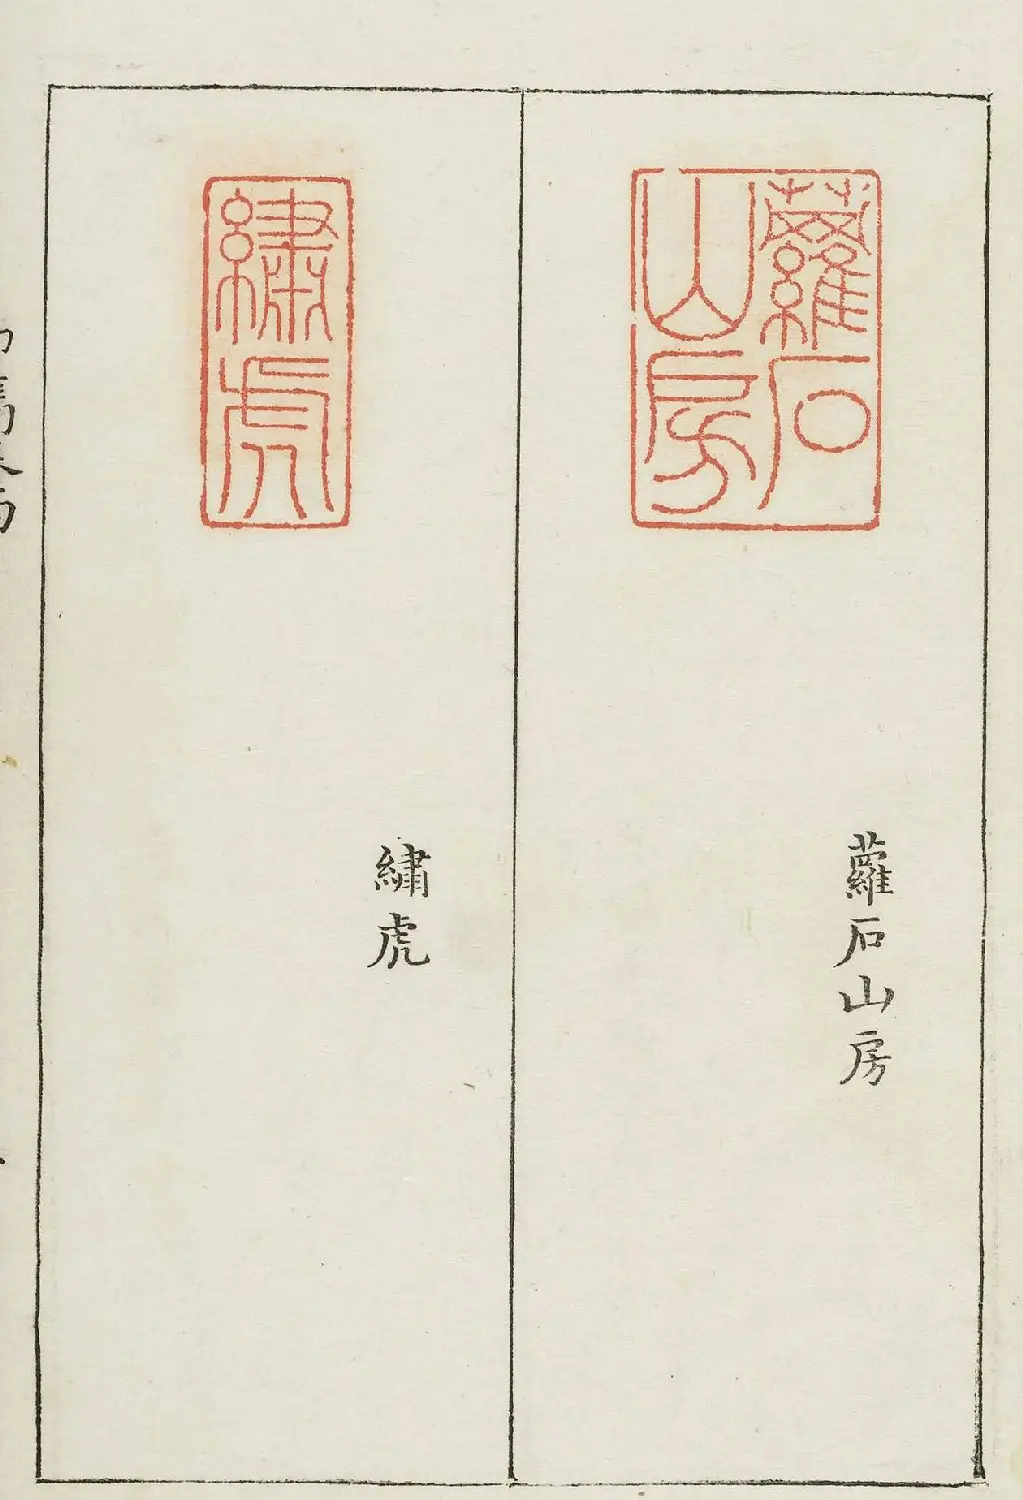 蘿石山房
蘿石山房
繡虎
繡虎